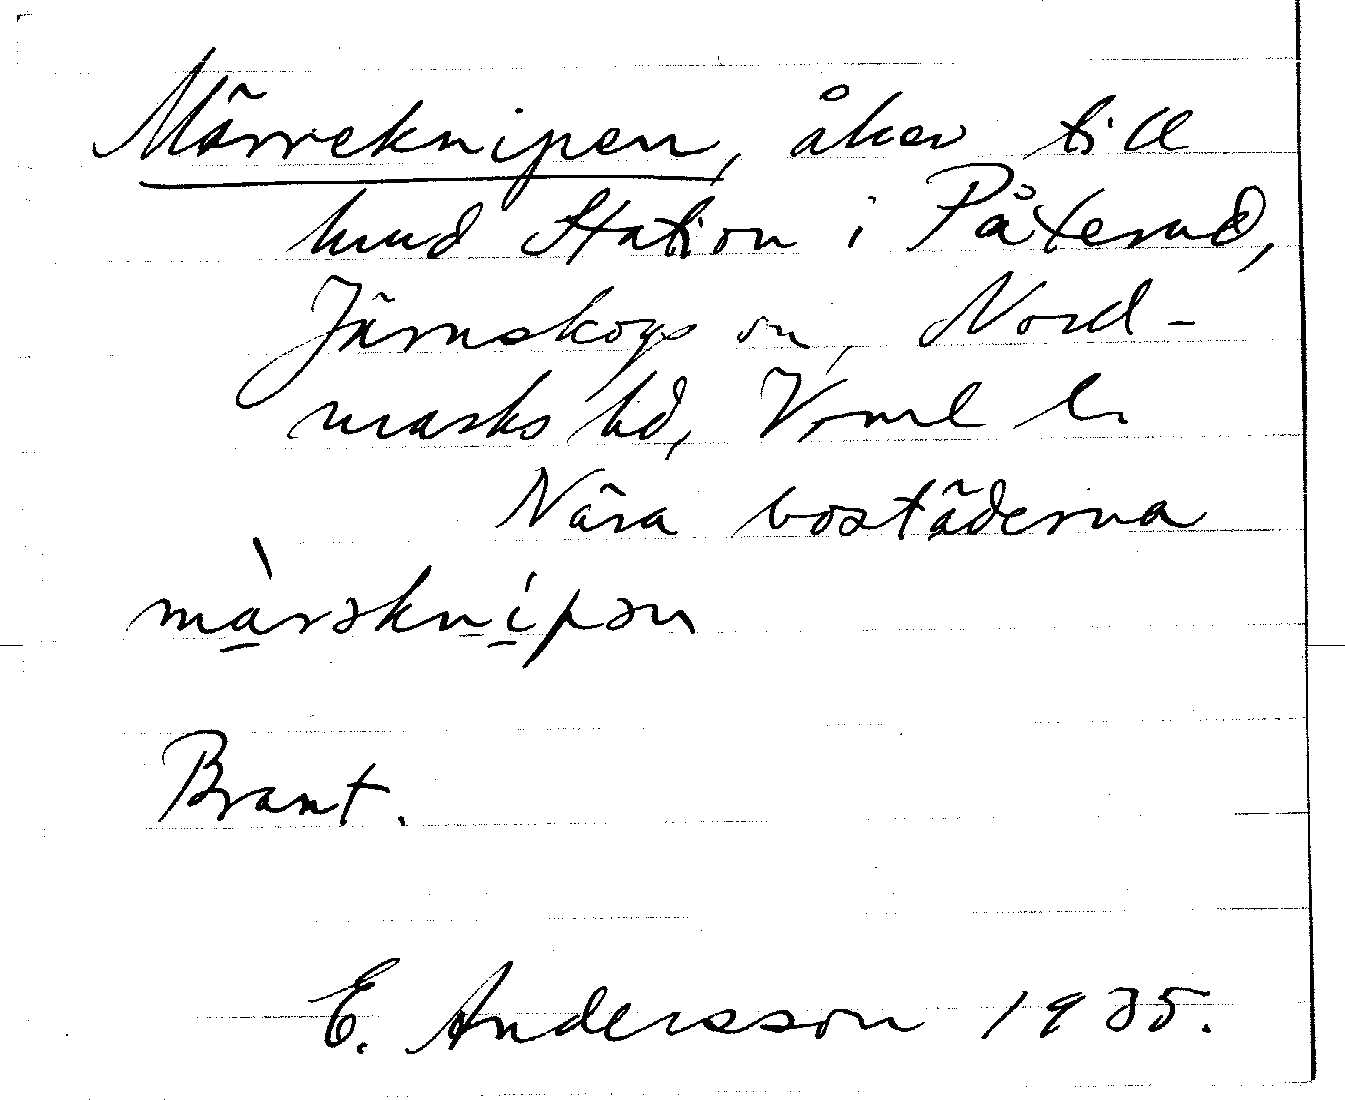 Märreknipen, åker till
hmd Station i Påterud,
Järnskogs sn, Nord-
marks hd, Vrml l.
Nära bostäderna
màrəknípən
Brant.
E. Andersson 1935.